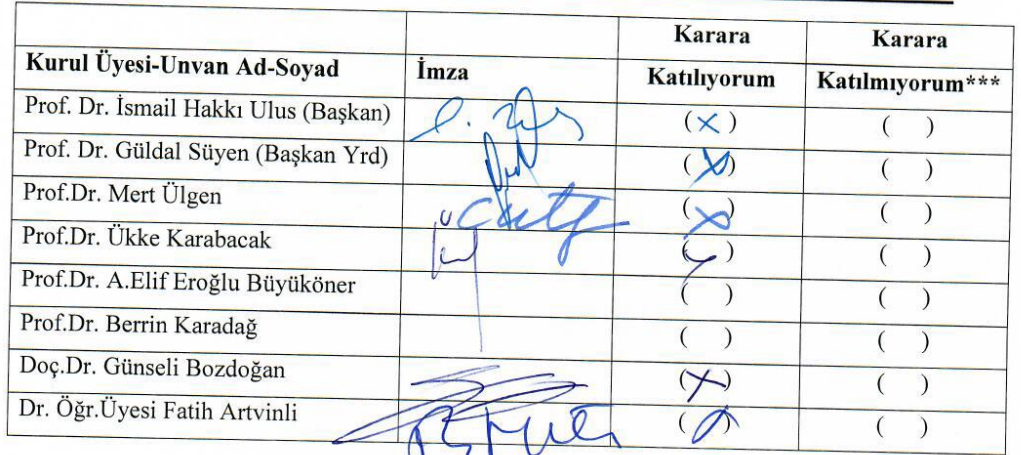 Karara Karara
Kurul Üyesi-Unvan Ad-Soyad İmza Katılıyorum Katılmıyorum***
Prof. Dr. İsmail Hakkı Ulus (Başkan) (x) ( )
Prof. Dr. Güldal Süyen (Başkan Yrd) (x) ( )
Prof.Dr. Mert Ülgen (x) ( )
Prof.Dr. Ükke Karabacak ( ) ( )
Prof.Dr. A.Elif Eroğlu Büyüköner ( ) ( )
Prof.Dr. Berrin Karadağ ( ) ( )
Doç.Dr. Günseli Bozdoğan (x) ( )
Dr. Öğr.Üyesi Fatih Artvinli ( ) ( )